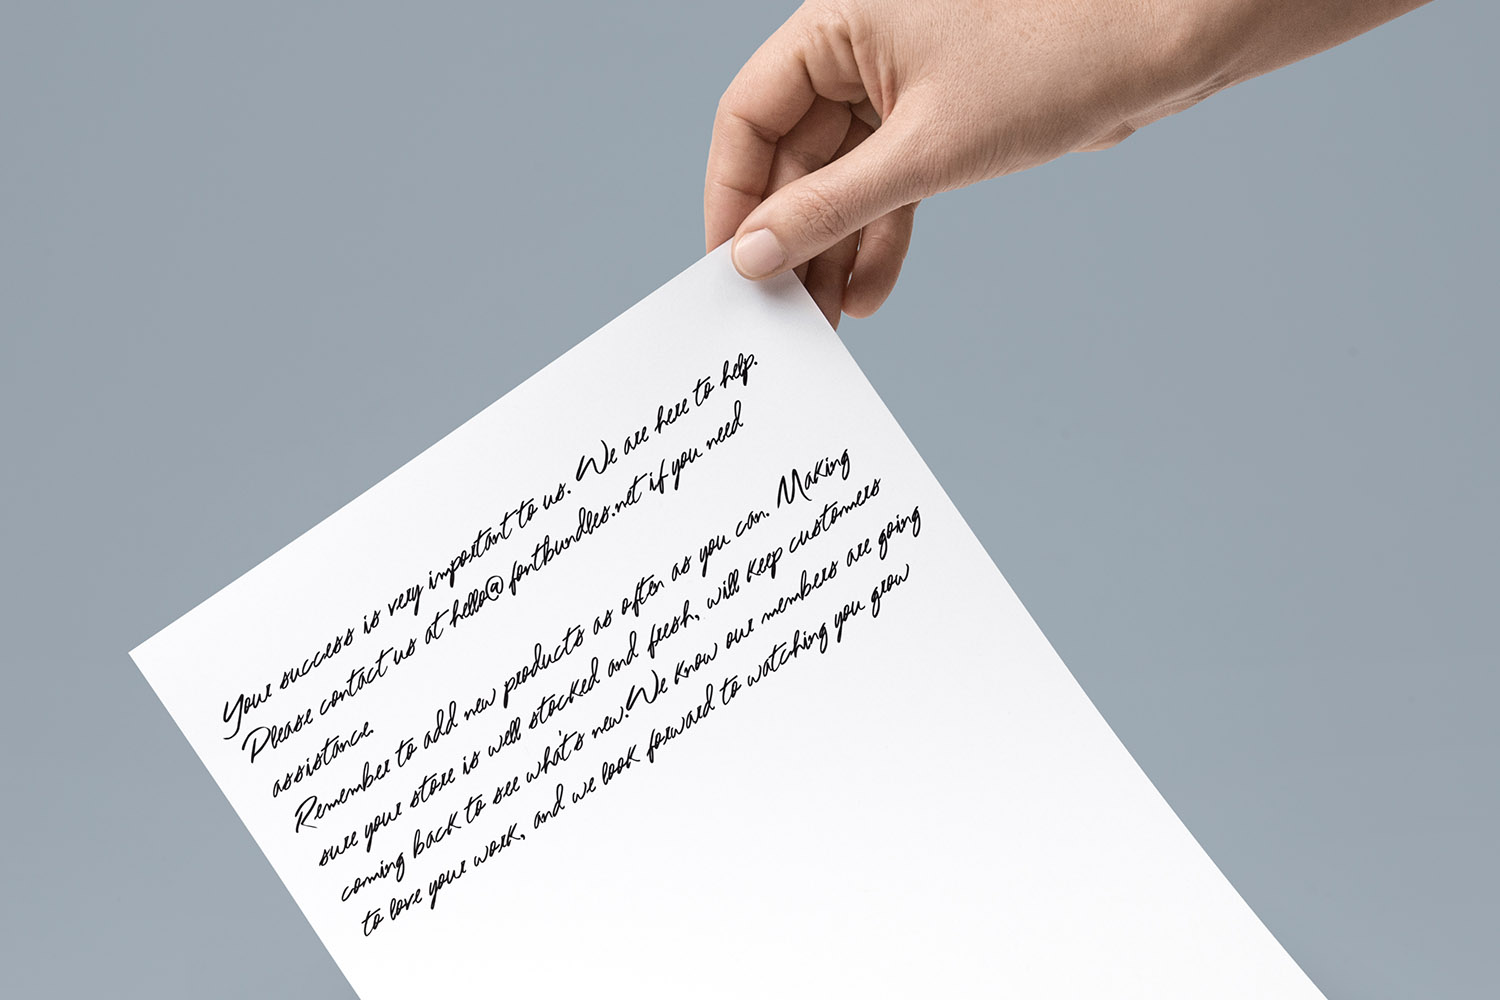 Your success is very important to us. We are here to help.
Please contact us at hello@fontbundles.net if you need
assistance.
Remember to add new products as often as you can. Making
sure your store is well stocked and fresh, will keep customers
coming back to see what's new.We know our members are going
to love your work, and we look forward to watching you grow